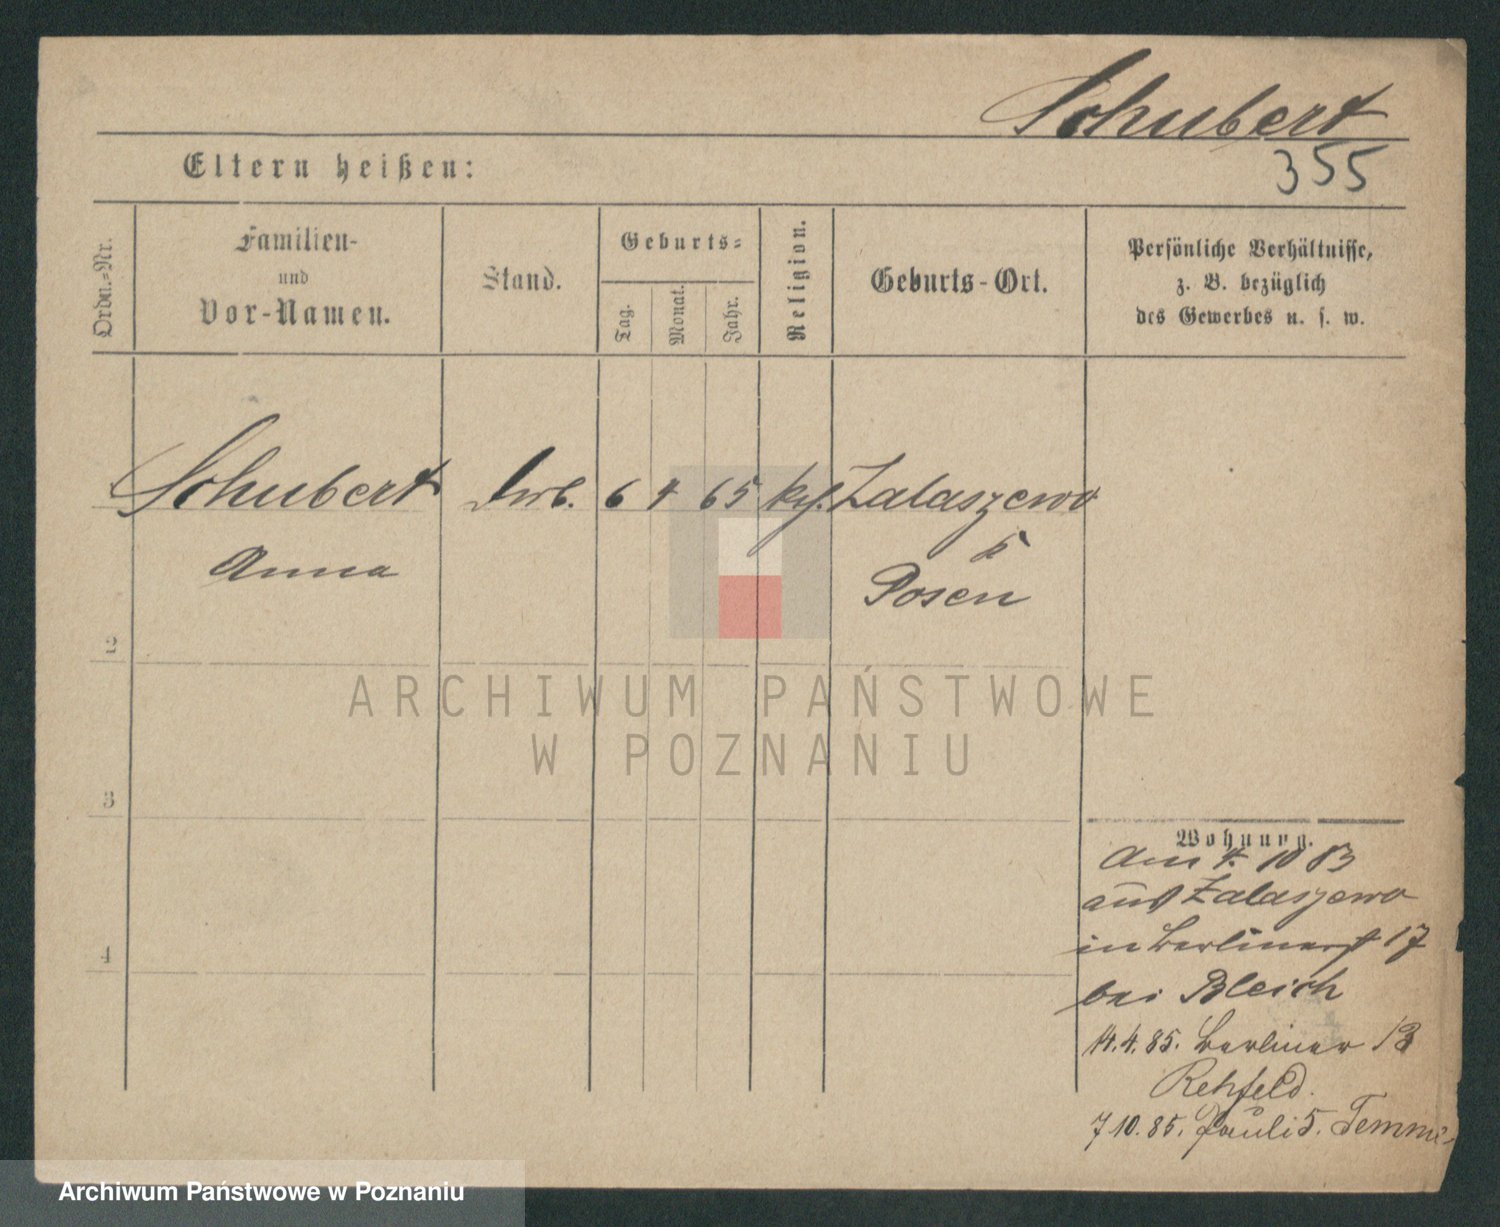 Schubert
355
Eltern heißen:
Ordn.-Nr.
Familien-
und
Vor-Namen.
Stand.
Geburts-
Tag.
Monat.
Jahr.
Religion.
Geburts-Ort.
Persönliche Verhältnisse,
z. B. bezüglich
des Gewerbes u. s. w.
Schubert 6 4 65 Zalaszewo
Anna
Posen
2
3
4
ARCHIWUM PAŃSTWOWE
W POZNANIU
Wohnung.
Am 4. 10 83
aus Zalaszewo
in Berlinerst 17
bei Bleich
14.4.85. Berliner 13
Rehfeld.
7 10. 85. Pauli 5. Temme
Archiwum Państwowe w Poznaniu